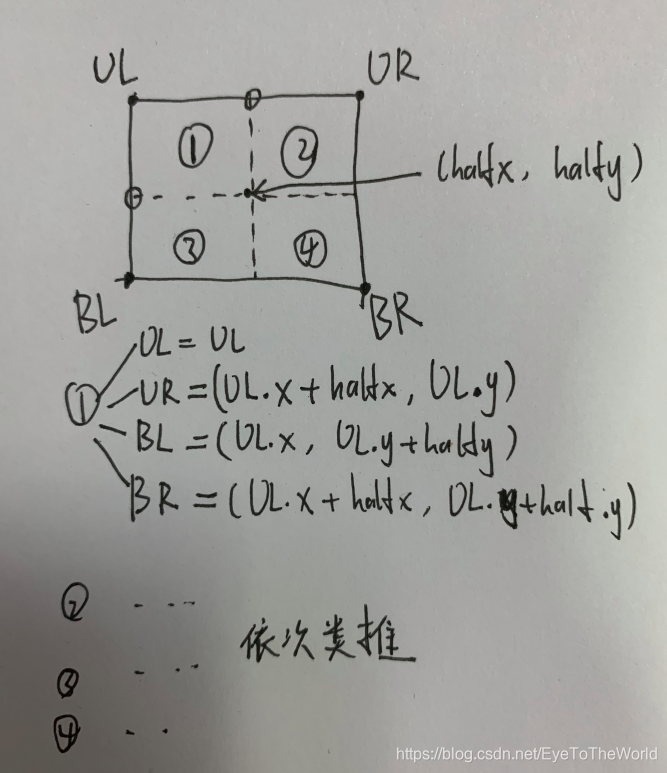 UL UR
① ②
(halfx, halfy)
③ ④
BL BR
① UL = UL
UR = (UL.x + halfx, UL.y)
BL = (UL.x, UL.y + halfy)
BR = (UL.x + halfx, UL.y + half.y)
② - - - -
依次类推
③ - - -
④ - -
https://blog.csdn.net/EyeToTheWorld